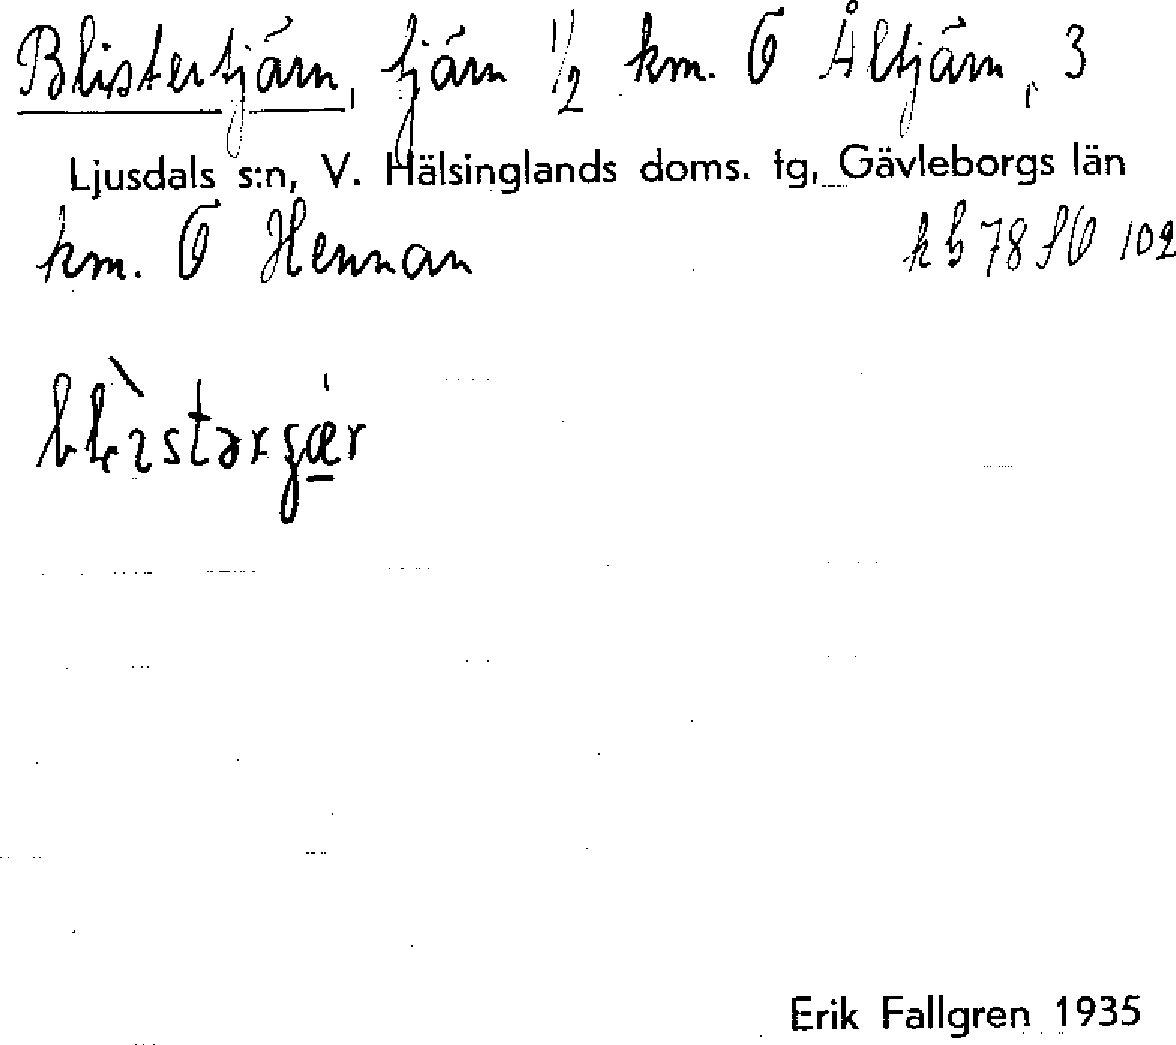 Blistertjärn, tjärn 1/2 km. Ö Åltjärn, 3
Ljusdals s:n, V. Hälsinglands doms. tg, Gävleborgs län
km. Ö Hennan kb 78 SO 102
Erik Fallgren 1935